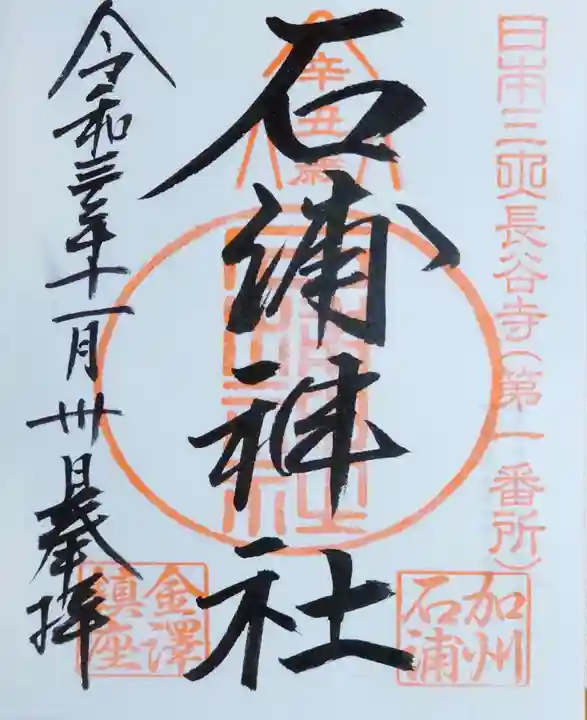 日本三大長谷寺(第一番所)
加州
石浦
辛丑歳
石浦神社
石浦神社
令和三年十一月卅日奉拝
金澤
鎮座